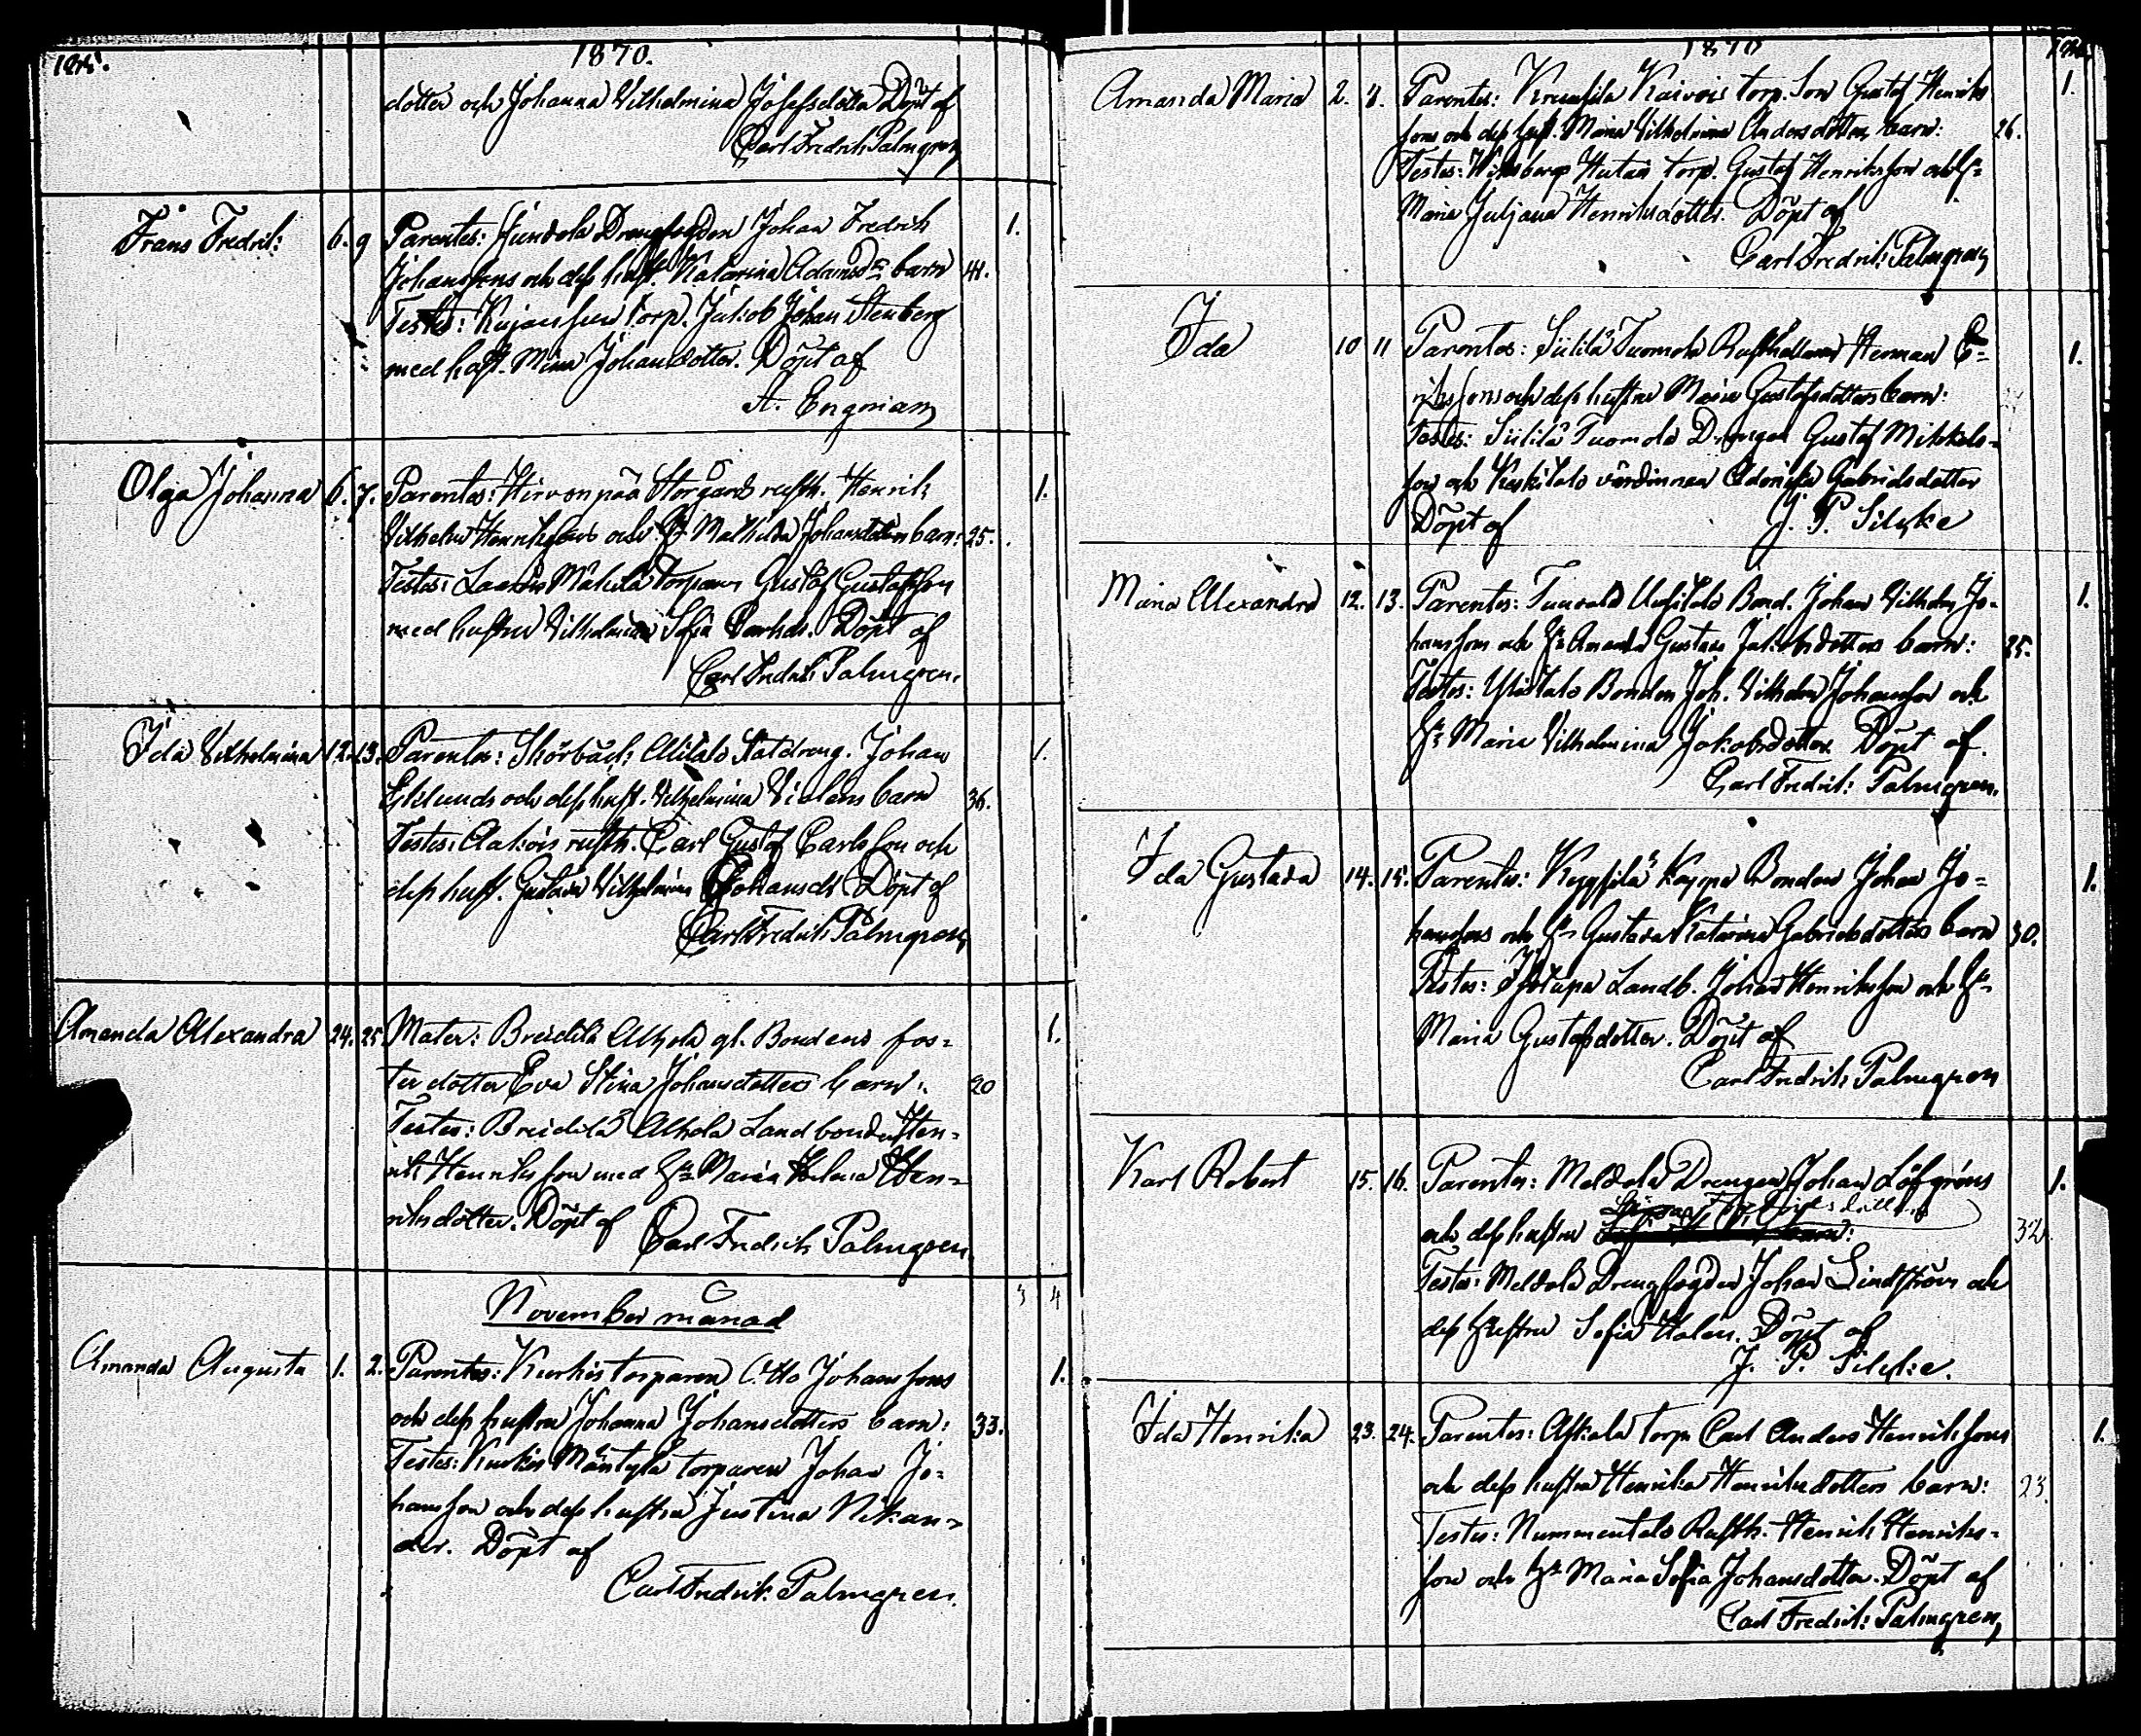 1870.
dotter och Johanna Vilhelmina Josefsdotter Döpt af
Carl Fredrik Palmgren
Frans Fredrik: 6. 9 Parentes: Johan Fredrik 1.
Johanssons och dess hust. Katarina Adamsdr barn 41.
Testes: torp. Jakob Johan Stenberg
med hust. Mina Johansdotter. Döpt af
A. Engman
Olga Johanna 6. 7. Parentes: Hirvonpää Storgård rusth. Henrik 1.
Vilhelm Henrikssons och Hu Mathilda Johansdotters barn: 25.
Testes: Mäkelä torparen Gustaf Gustafsson
med hustru Vilhelmina Sofia Döpt af
Carl Fredrik Palmgren.
Ida Vilhelmina 12. 13. Parentes: Skörbäck Alitalo Statdreng. Johan 1.
Eklunds och dess hust. Vilhelmina barn 36.
Testes: rusth. Carl Gustaf Carlsson och
dess hust. Gustava Vilhelmina Johansdr Döpt af
Carl Fredrik Palmgren
Amanda Alexandra 24. 25. Mater: Breidilä Alhola gl. Bondens fos- 1.
terdotter Eva Stina Johansdotters barn: 20
Testes: Breidilä Alhola Landbonden Hen-
rik Henriksson med Hu Maria Helena Hen-
riksdotter. Döpt af Carl Fredrik Palmgren.
3 4
November månad
Amanda Augusta 1. 2. Parentes: Kurkis torparen Otto Johanssons 1.
och dess hustru Johanna Johansdotters barn: 33.
Testes: Kurkis Mäntylä torparen Johan Jo-
hansson och dess hustru Justina Nikan-
der. Döpt af
Carl Fredrik Palmgren.
1870
Amanda Maria 2. Parentes: torp. Son Gustaf Henriks 1.
sons och dess hust. Maria Vilhelmina Andersdotters barn: 26.
Testes: torp. Gustaf Henriksson och H-
Maria Juljana Henriksdotter. Döpt af
Carl Fredrik Palmgren
Ida 10 11 Parentes: Siililä Tuomola Rusthållaren Herman E- 1.
rikssons och dess hustru Maria Gustafsdotters barn:
Testes: Siililä Tuomola Drengen Gustaf Mikkels-
son och Keskitalo värdinnan Gabrielsdotter
Döpt af J. P. Silcke
Maria Alexandra 12. 13. Parentes: Bond. Johan Vilhelm Jo- 1.
hanssons och Hu Amanda Gustava Jakobsdotters barn: 25.
Testes: Ylistalo Bonden Joh. Vilhelm Johansson och
Hu Maria Vilhelmina Jakobsdotter Döpt af.
Carl Fredrik: Palmgren.
Ida Gustava 14. 15. Parentes: Bonden Johan Jo- 1.
hanssons och Hu Gustava Katarina Gabrielsdotters barn 30.
Testes: Landb. Johan Henriksson och Hu
Maria Gustafsdotter. Döpt af
Carl Fredrik Palmgren
Karl Robert 15. 16. Parentes: Meldola Drengen Johan Löfgréns 1.
och dess hustru 32.
Testes: Meldola Drengfogden Johan Lindström och
dess Hustru Sofia Döpt af
J. P. Silcke.
Ida Henrika 23. 24. Parentes: Askala torp. Carl Anders Henrikssons 1.
och dess hustru Henrika Henriksdotters barn: 23.
Testes: Nummentalo Rusth. Henrik Henriks-
son och Hu Maria Sofia Johansdotter. Döpt af
Carl Fredrik: Palmgren